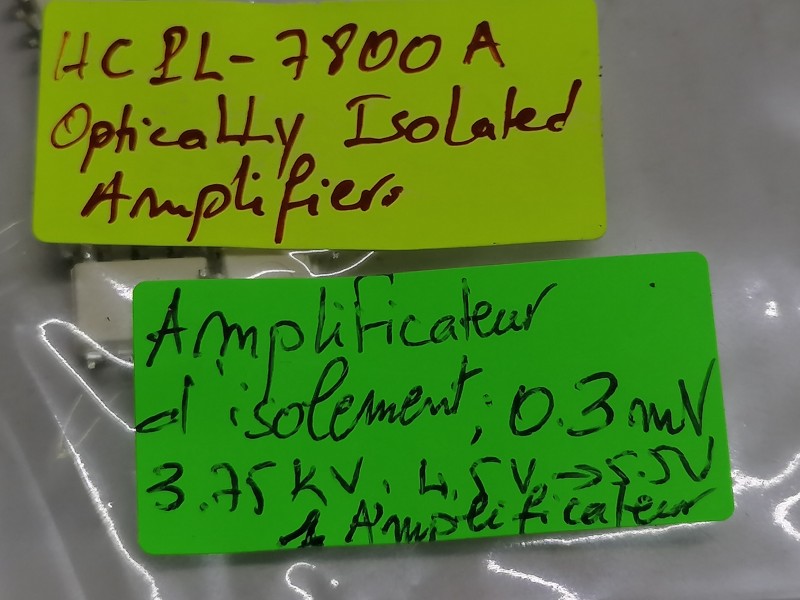 HCPL-7800A
Optically Isolated
Amplifiers
Amplificateur
d'isolement; 0.3mV
3.75KV, 4.5V→5.5V
1 Amplificateur